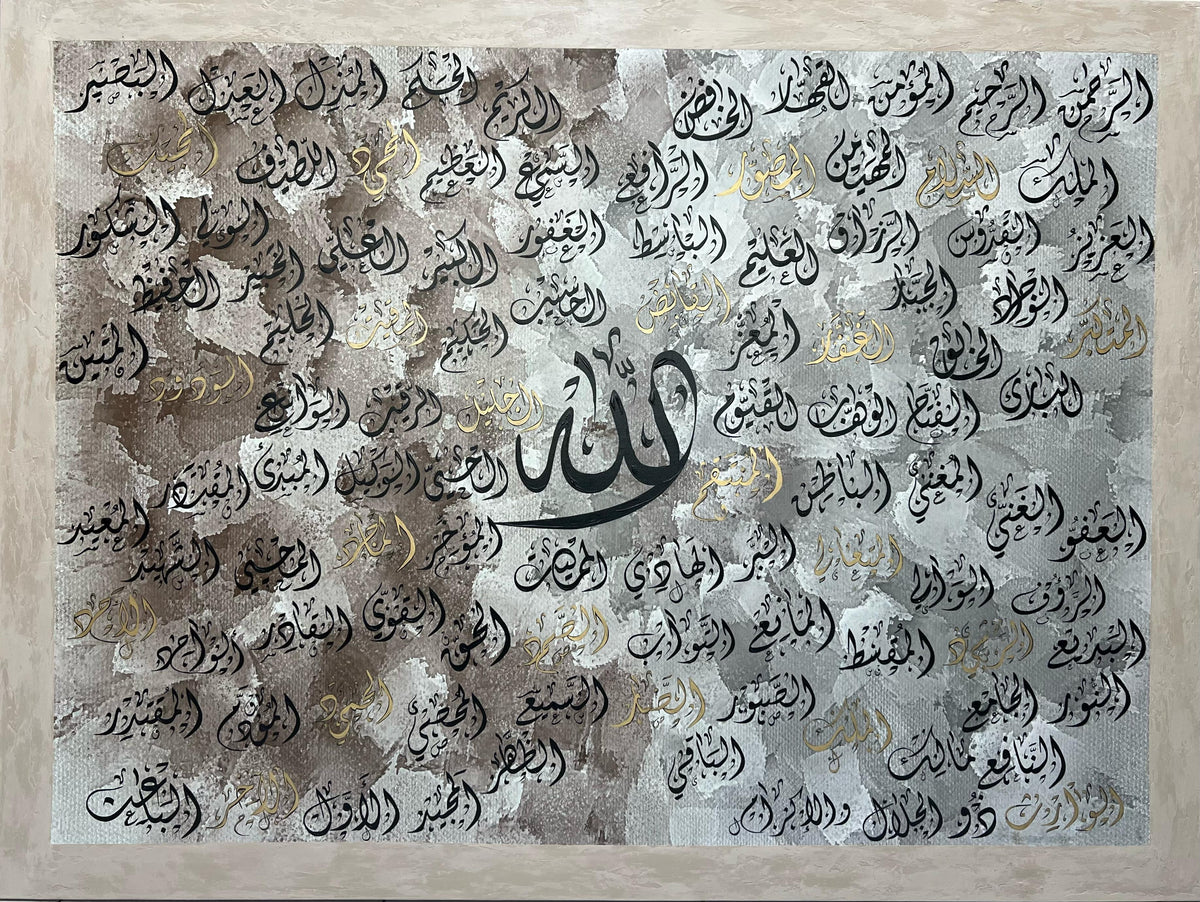 الرحمن الرحيم المؤمن القهار الخافض الكريم الحكم المذل العدل البصير
الملك السلام المهيمن المصور الرافع السميع العظيم المجيد اللطيف المجيب
العزيز القدوس الرزاق العليم الباسط الغفور الكبير العلي الخبير الولي الشكور
المتكبر الجبار القابض الحسيب الحفيظ
الخالق الغفار المعز الحكيم المقيت الحليم المتين
البارئ الفتاح الوهاب القيوم الله الجليل الرقيب الواسع الودود
العفو الغني المغني الباطن المنتقم الحي الوكيل المبدئ المقتدر المعيد
الرؤوف الوالي المتعالي البر الهادي المميت المؤخر الماجد المحيي الشهيد
البديع المقسط المانع التواب الصمد الحق القوي القادر الواحد الأحد
النور الجامع الملك الصبور المحصي الحميد المقتدر
الوارث النافع مالك الباقي الظاهر
ذو الجلال والإكرام المجيد الأول الآخر الباعث